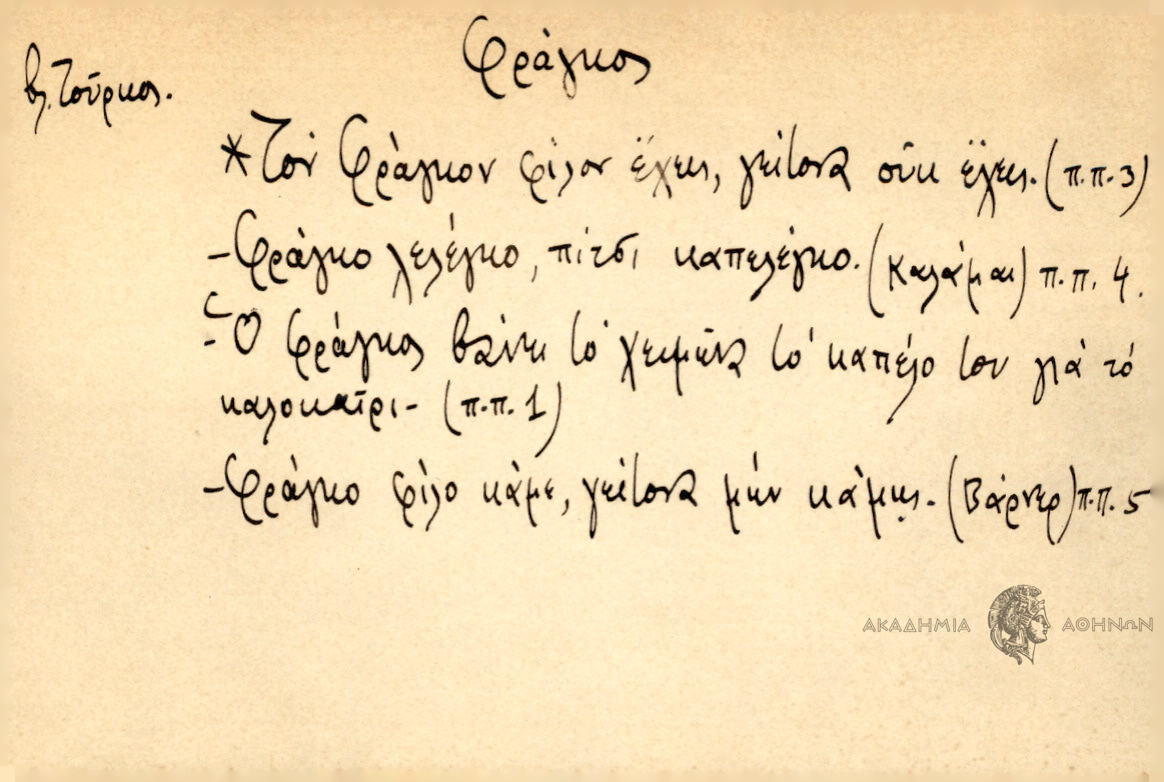 Φράγκος
βλ. Τοῦρκος.
*Τὸν Φράγκον φίλον ἔχεις, γείτονα οὐκ ἔχεις. (π.π. 3)
-Φράγκο λελέγκο, πίτσι καπελέγκο. (Καλάμαι) π.π. 4.
-Ὁ φράγκος βάνει τὸ χειμῶνα τὸ καπέλο του γιὰ τὸ
καλοκαῖρι- (π.π. 1)
-Φράγκο φίλο κάμε, γείτονα μὴν κάμῃς. (Βάρνερ) π.π. 5
ΑΚΑΔΗΜΙΑ ΑΘΗΝΩΝ